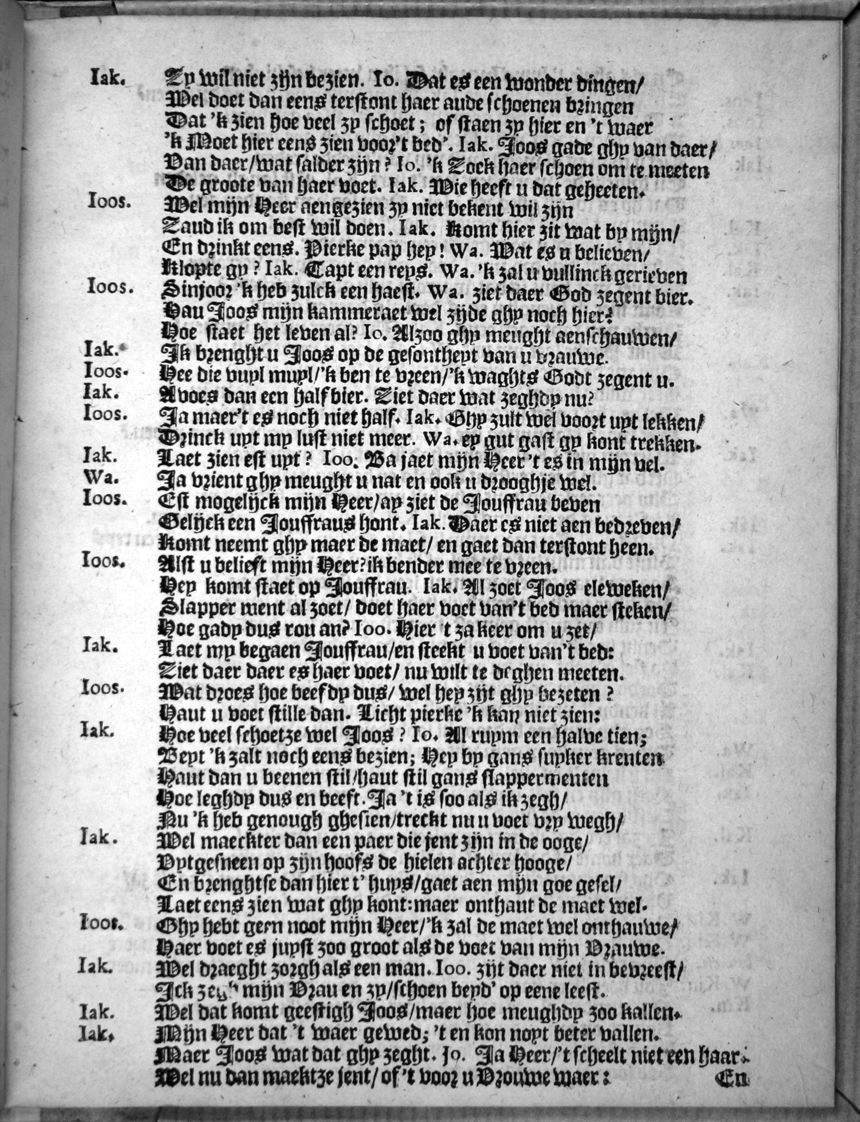 Iak. Zy wil niet zijn bezien. Io. Dat es een wonder dingen/
Wel doet dan eens terstont haer aude schoenen bringen
Dat 'k zien hoe veel zy schoet; of staen zy hier en 't waer
'k Moet hier eens zien voor't bed'. Iak. Joos gade ghy van daer/
Van daer/wat salder zijn? Io. 'k Zoek haer schoen om te meeten
De groote van haer voet. Iak. Wie heeft u dat geheeten.
Ioos. Wel mijn Heer aengezien zy niet bekent wil zijn
Zaud ik om best wil doen. Iak. Komt hier zit wat by mijn/
En drinkt eens. Pierke pap hey! Wa. Wat es u believen/
Klopte gy? Iak. Tapt een reys. Wa. 'k zal u vullinck gerieven
Ioos. Sinjoor 'k heb zulck een haest. Wa. ziet daer God zegent bier.
Hau Joos mijn kammeraet wel zijde ghy noch hier?
Hoe staet het leven al? Io. Alzoo ghy meught aenschauwen/
Iak. Ik brenght u Joos op de gesontheyt van u vrauwe.
Ioos. Hee die vuyl muyl/'k ben te vreen/'k waghts Godt zegent u.
Iak. Avoes dan een half bier. Ziet daer wat zeghdy nu?
Ioos. Ja maer't es noch niet half. Iak. Ghy zult wel voort uyt lekken/
Drinck uyt my lust niet meer. Wa. ey gut gast gy kont trekken.
Iak. Laet zien est uyt? Ioo. Ba jaet mijn Heer 't es in mijn vel.
Wa. Ja vrient ghy meught u nat en ook u drooghje wel.
Ioos. Est mogelijck mijn Heer/ay ziet de Jouffrau beven
Gelijck een Jouffraus hont. Iak. Daer es niet aen bedreven/
Komt neemt ghy maer de maet/ en gaet dan terstont heen.
Ioos. Alst u belieft mijn Heer?ik bender mee te vreen.
Hey komt staet op Jouffrau. Iak. Al zoet Joos eleweken/
Slapper ment al zoet/ doet haer voet van't bed maer steken/
Hoe gady dus rou an? Ioo. Hier 't za keer om u zet/
Iak. Laet my begaen Jouffrau/en steekt u voet van't bed:
Ziet daer daer es haer voet/ nu wilt te deghen meeten.
Ioos. Wat droes hoe beefdy dus/ wel hey zijt ghy bezeten?
Haut u voet stille dan. Licht pierke 'k kan niet zien:
Iak. Hoe veel schoetze wel Joos? Io. Al ruym een halve tien;
Beyt 'k zalt noch eens bezien; Hey by gans suyker krenten
Haut dan u beenen stil/haut stil gans slappermenten
Hoe leghdy dus en beeft. Ja 't is soo als ik zegh/
Nu 'k heb genough ghesien/treckt nu u voet vry wegh/
Iak. Wel maeckter dan een paer die jent zijn in de ooge/
Uytgesneen op zijn hoofs de hielen achter hooge/
En brenghtse dan hier t' huys/gaet aen mijn goe gesel/
Laet eens zien wat ghy kont:maer onthaut de maet wel.
Ioos. Ghy hebt geen noot mijn Heer/'k zal de maet wel onthauwe/
Haer voet es juyst zoo groot als de voet van mijn Vrauwe.
Iak. Wel draeght zorgh als een man. Ioo. zijt daer niet in bevreest/
Ick mijn Vrau en zy/schoen beyd' op eene leest.
Iak. Wel dat komt geestigh Joos/maer hoe meughdy zoo kallen.
Iak. Mijn Heer dat 't waer gewed; 't en kon noyt beter vallen.
Maer Joos wat dat ghy zeght. Jo. Ja Heer/'t scheelt niet een haar.
Wel nu dan maektze jent/ of 't voor u Vrouwe waer:
En